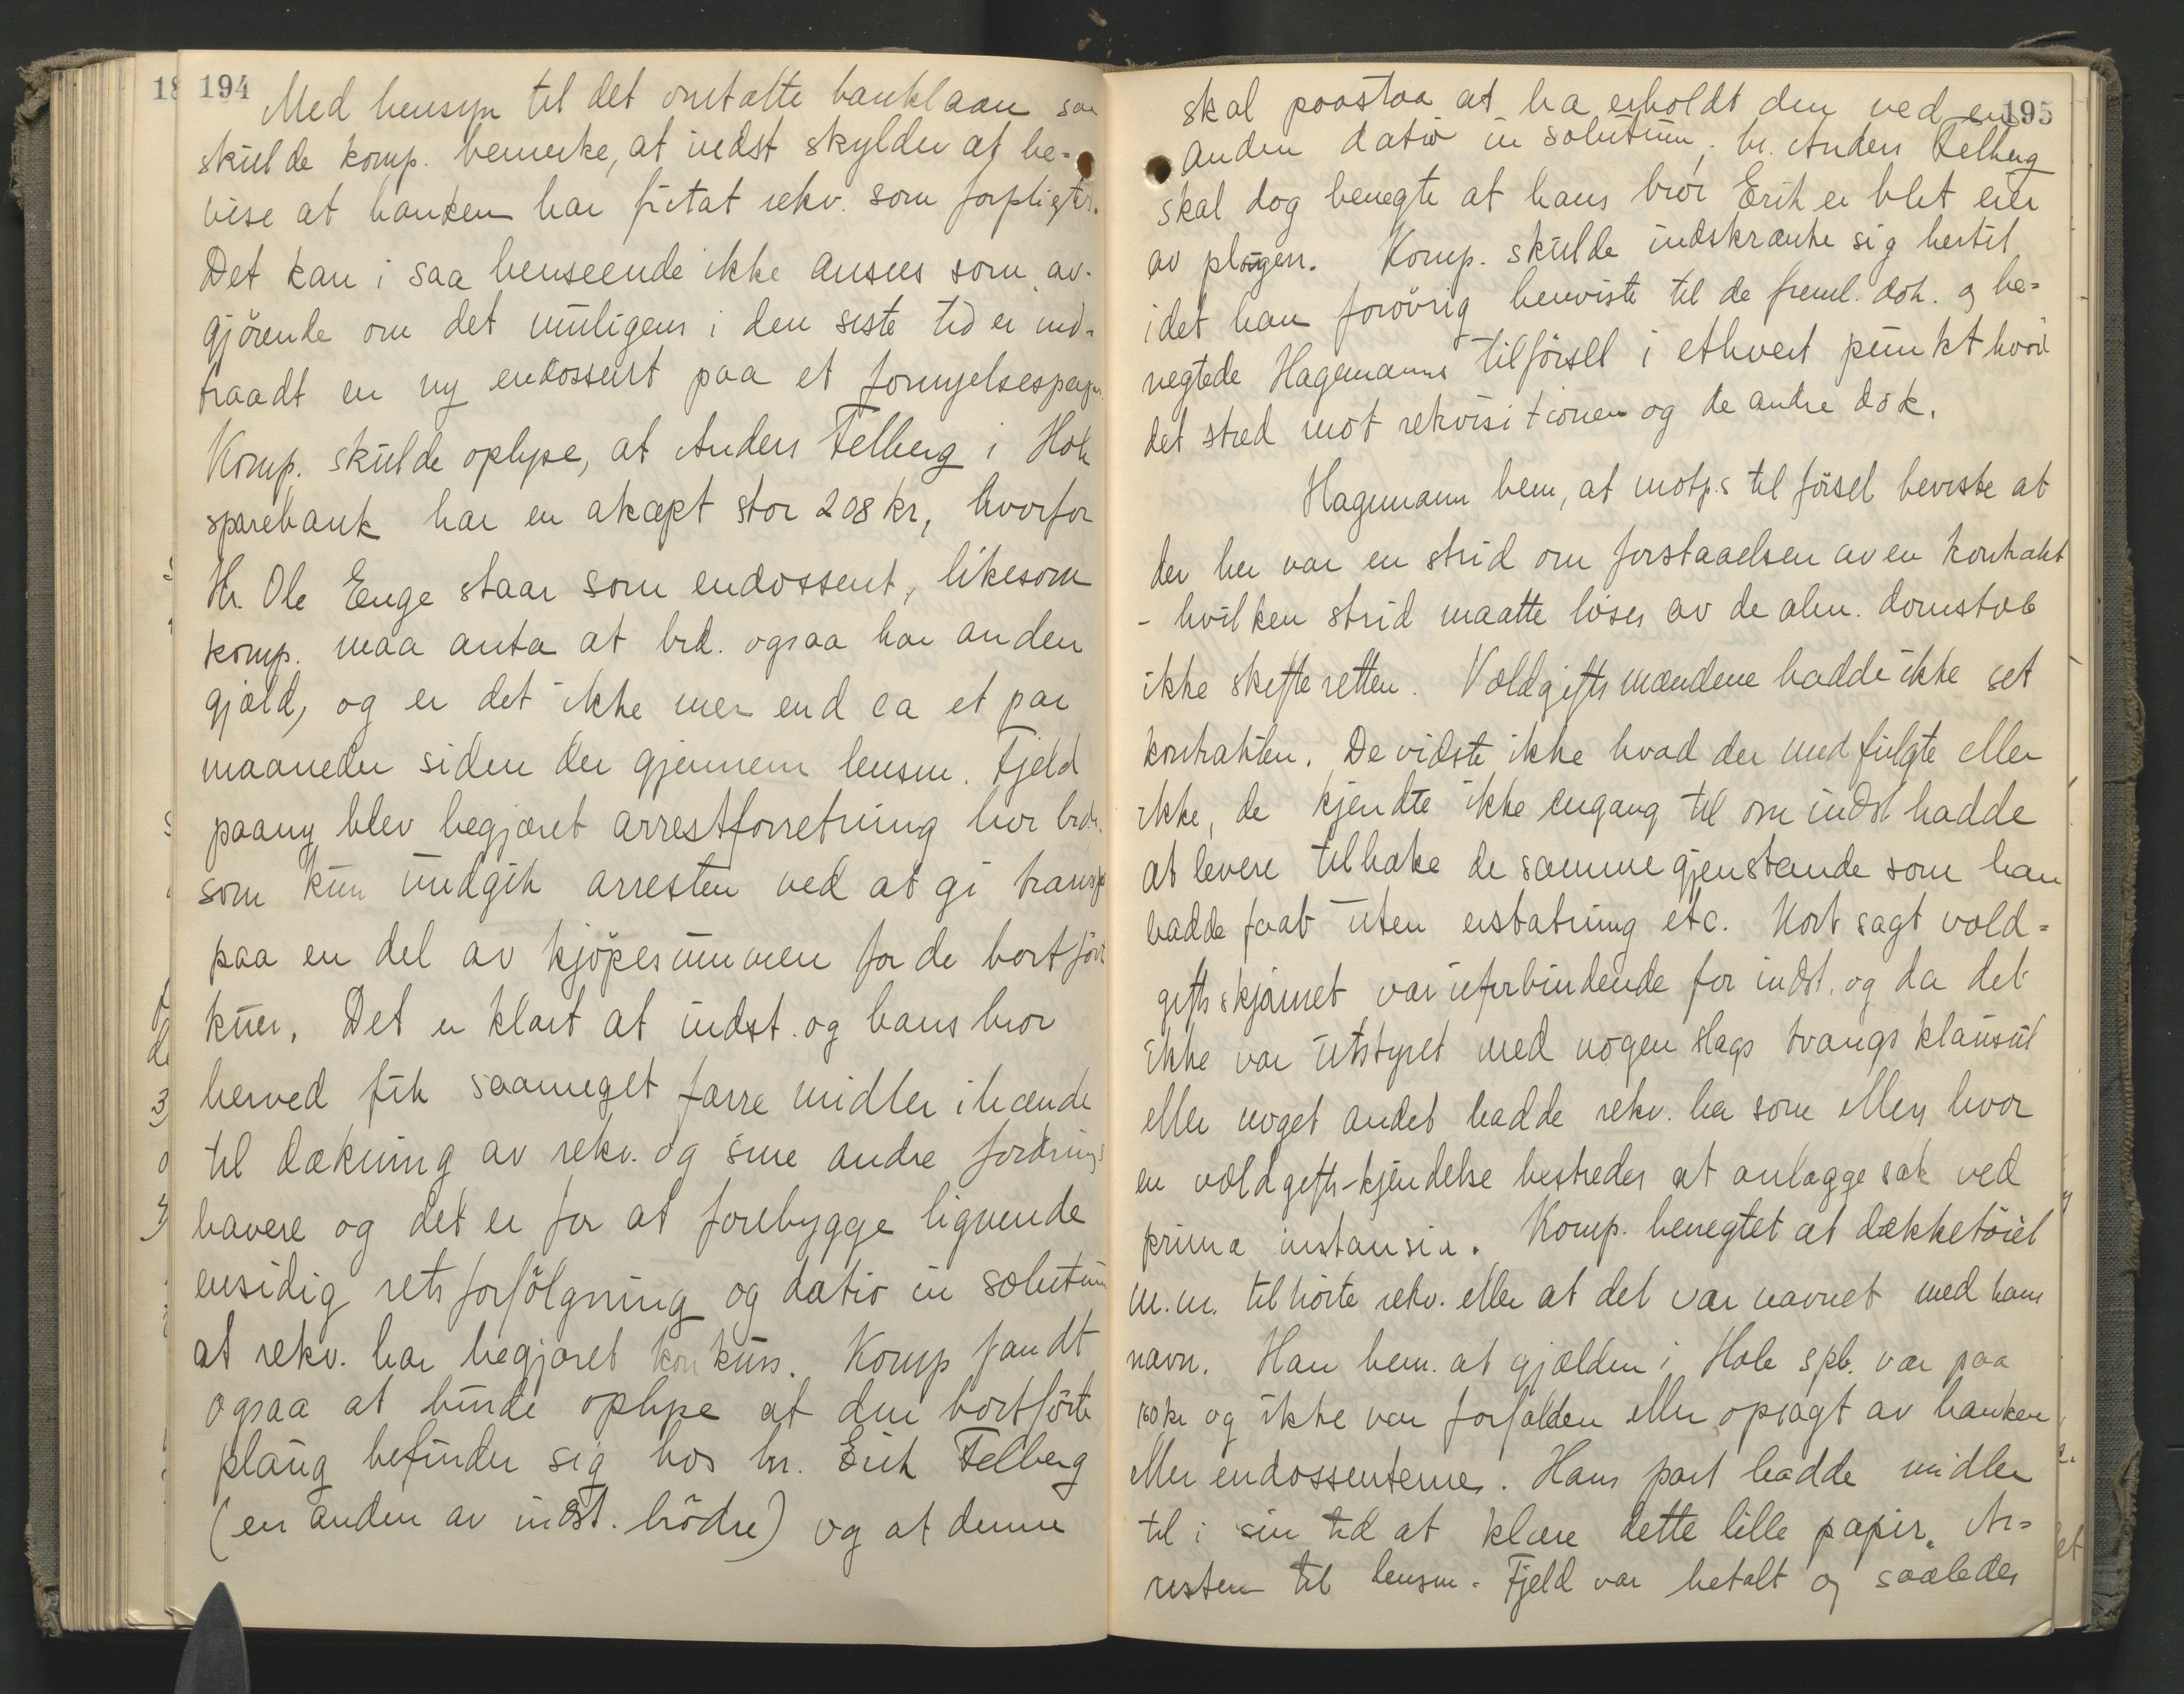 194
Med hensyn til det omtalte banklaan saa
skulde komp. bemerke, at indst skylder at be-
vise at banken har fritat rekv. som forpligtet.
Det kan i saa henseende ikke ansees som av-
gjörende om det muligens i den siste tid er ind-
traadt en ny endossent paa et fornyelsespapir.
Komp. skulde oplyse, at Anders Felberg i Hole
sparebank har en akcept stor 208 kr, hvorfor
Hr. Ole Enge staar som endossent, likesom
komp. maa anta at hrd. ogsaa har anden
gjæld, og er det ikke mer end ca et par
maaneder siden der gjennem lensm. Fjeld
paany blev begjæret arrestforretning hos brdr.
som kun undgik arresten ved at gi transp
paa en del av kjöpesummen for de bortförte
kuer. Det er klart at indst. og hans bror
herved fik saameget færre midler ihænde
til dækning av rekv. og sine andre fordrings
havere og det er for at forebygge lignende
ensidig retsforfölgning og datio in solutum
at rekv. har begjæret konkurs. Komp fandt
ogsaa at burde oplyse at den bortförte
plaug befinder sig hos hr. Erik Felberg
(en anden av indst. brödre) og at denne
195
skal paastaa at ha erholdt den ved en
anden datio in solutum, hr. Anders Felberg
skal dog benegte at hans bror Erik er blet eier
av plogen. Komp. skulde indskrænke sig hertil
idet han forövrig henviste til de freml. dok. og be-
negtede Hagemanns tilförsel i ethvert punkt hvori
det stred mot rekvisitionen og de andre dok.
Hagemann bem, at motp.s tilförsel beviste at
der her var en strid om forstaaelsen av en kontrakt
- hvilken strid maatte löses av de alm. domstole
ikke skifteretten. Voldgiftsmændene hadde ikke set
kontrakten. De vidste ikke hvad der medfulgte eller
ikke, de kjendte ikke engang til om indst hadde
at levere tilbake de samme gjenstande som han
hadde faat uten erstatning etc. Kort sagt vold-
giftsskjönnet var uforbindende for indst. og da det
ikke var utstyret med nogen slags tvangsklausul
eller noget andet hadde rekv. her som ellers hvor
en voldgifts-kjendelse bestredes at anlægge sak ved
prima instansia. Komp. benegtet at dækketöiet
m.m. tilhörte rekv. eller at det var navnet med hans
navn. Han bem. at gjælden i Hole spb. var paa
160 kr og ikke var forfalden eller opsagt av banken
eller endossenterne. Hans part hadde midler
til i sin tid at klare dette lille papir. Ar-
resten til lensm. Fjeld var betalt og saaledes